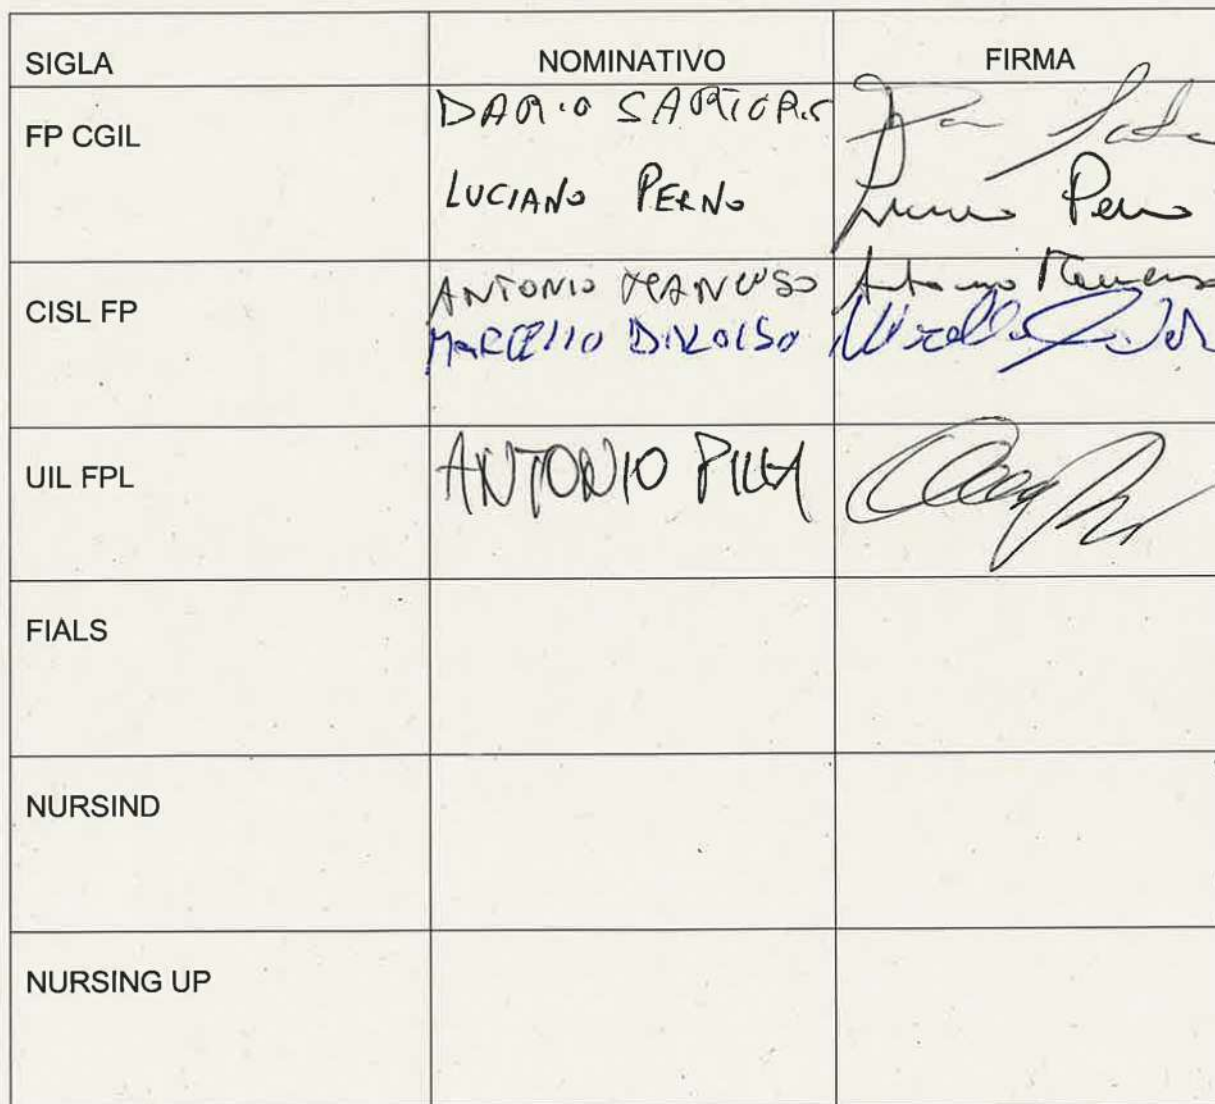 SIGLA NOMINATIVO FIRMA
FP CGIL
DARIO SARTORI
LUCIANO PERNO
Perno
CISL FP
ANTONIO MANCUSO
Antonio
MARCELLO
UIL FPL
ANTONIO PILLA
FIALS
NURSIND
NURSING UP